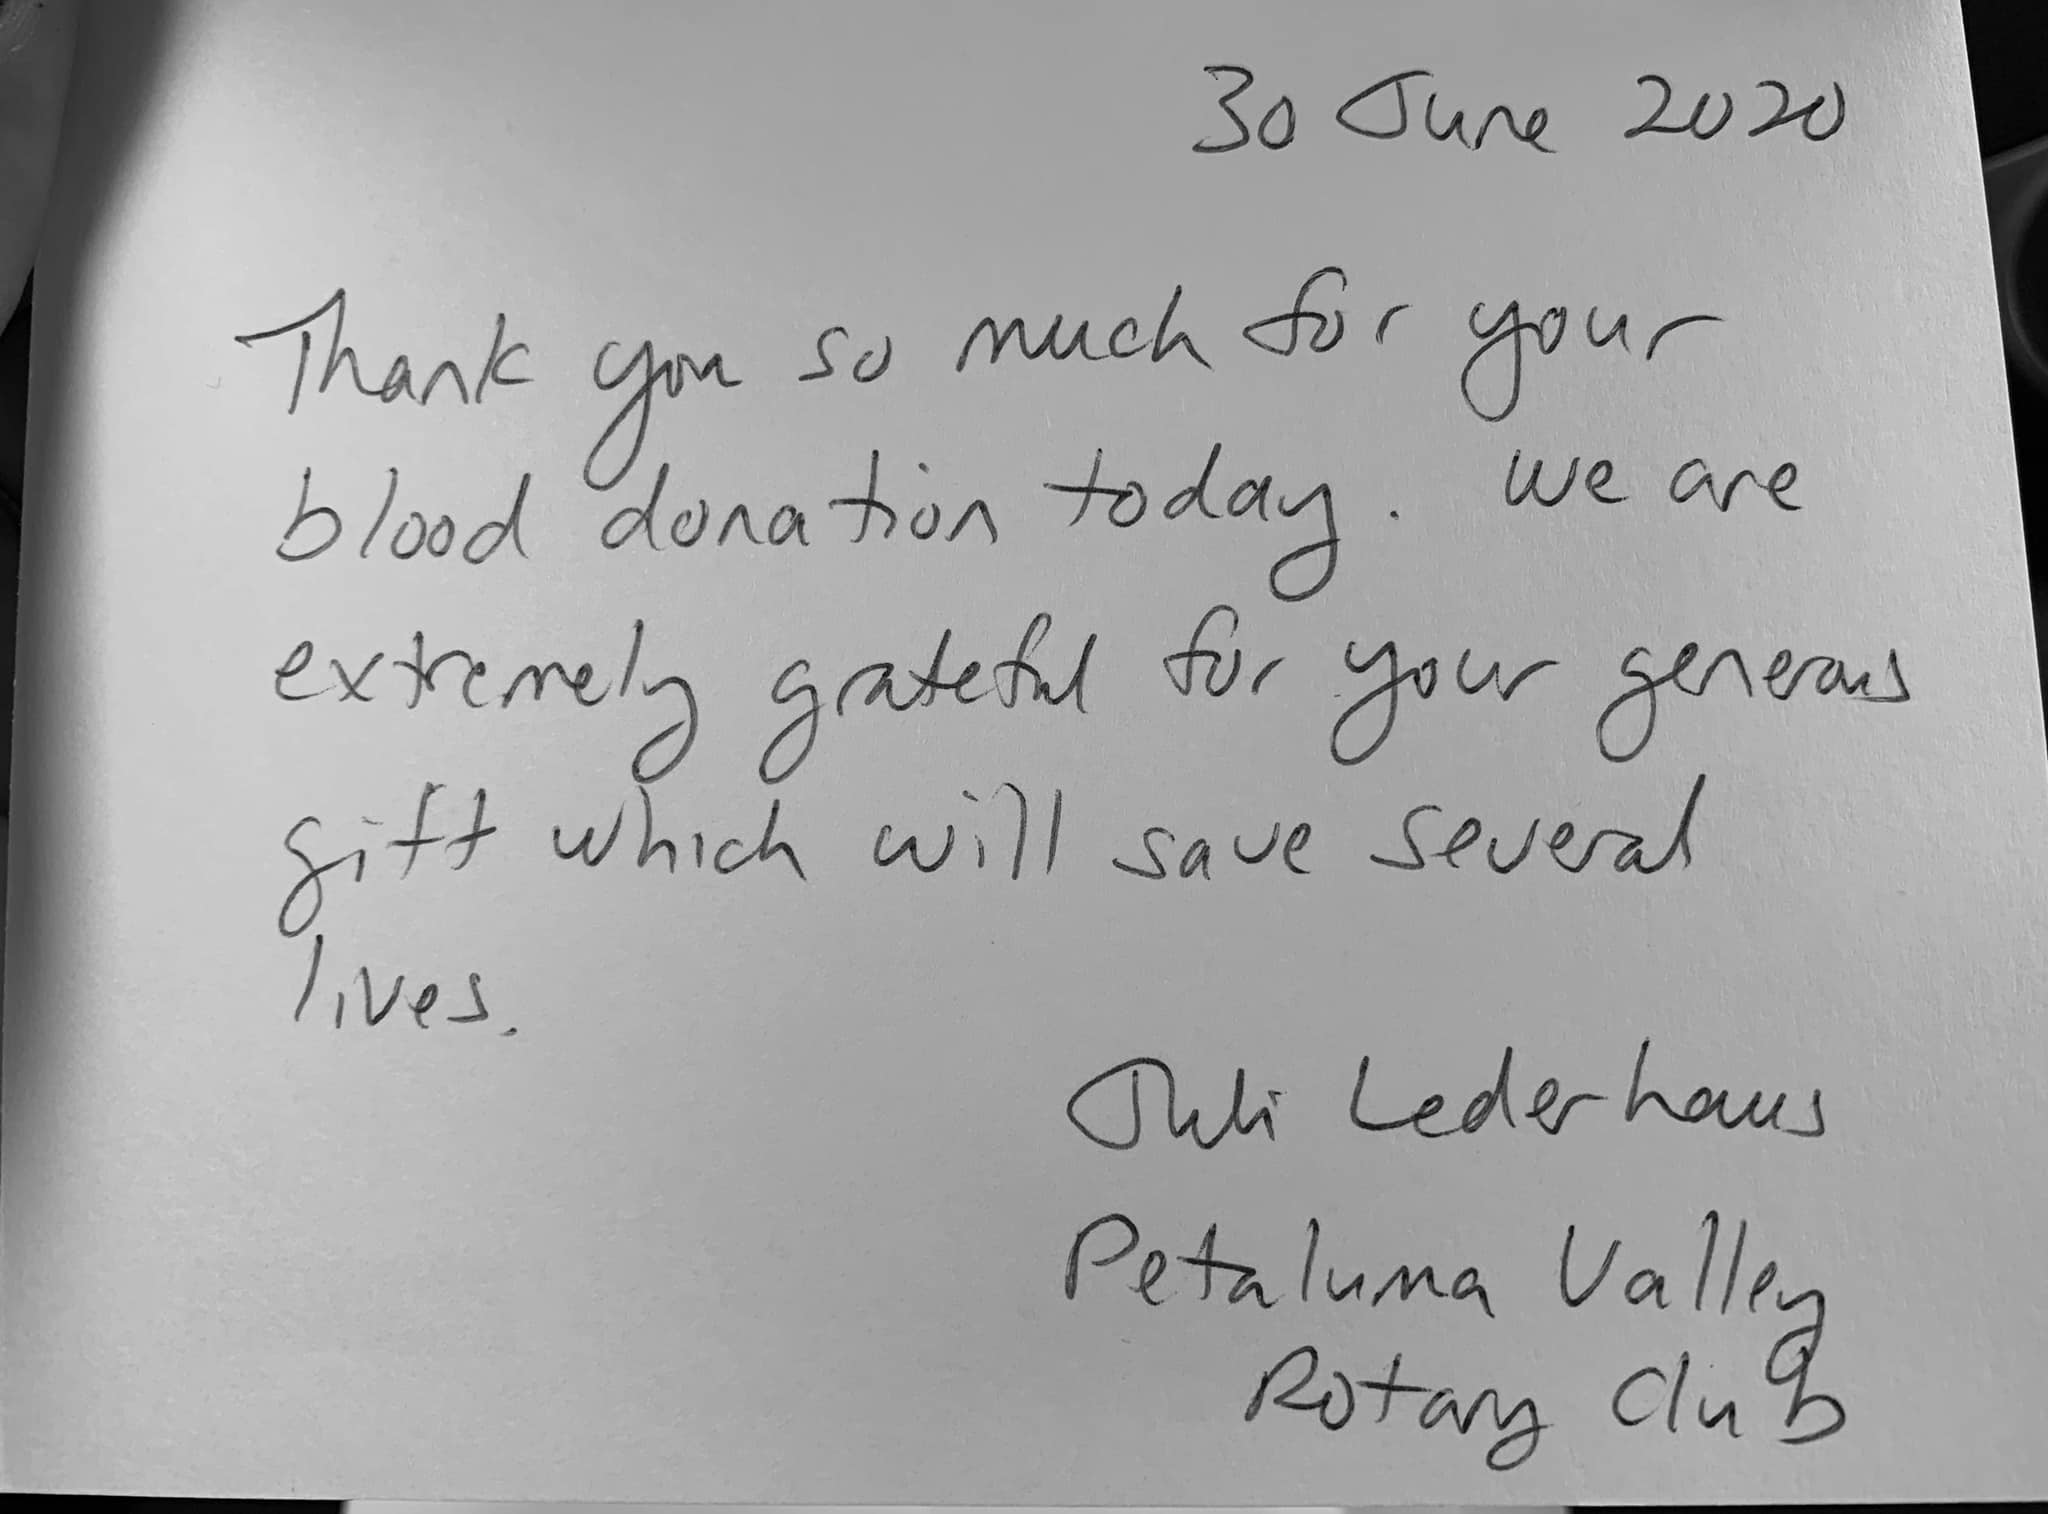 30 June 2020
Thank you so much for your
blood donation today. We are
extremely grateful for your generous
gift which will save several
lives.
Juli Lederhaus
Petaluma Valley
Rotary Club